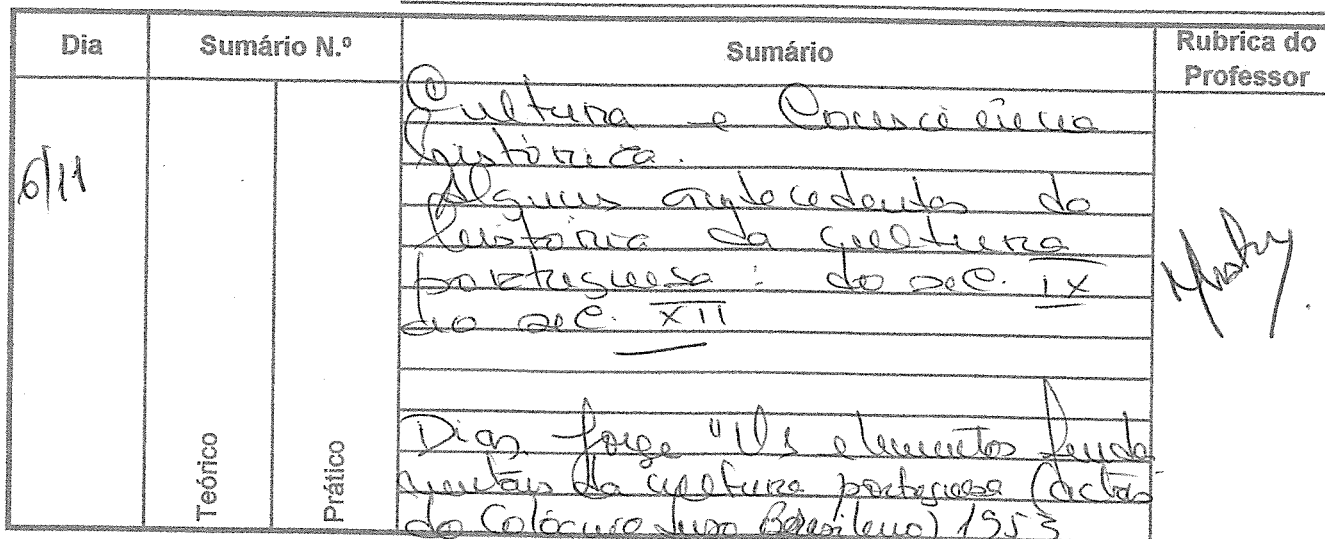 Dia
Sumário N.º
Sumário
Rubrica do
Professor
6/11
Cultura e Consciência
histórica.
Alguns antecedentes da
história da cultura
portuguesa: do séc. IX
ao séc. XII
Teórico
Prático
Dias, Jorge "Os elementos funda
mentais da cultura portuguesa (actas
do Colóquio Luso Brasileiro) 1953